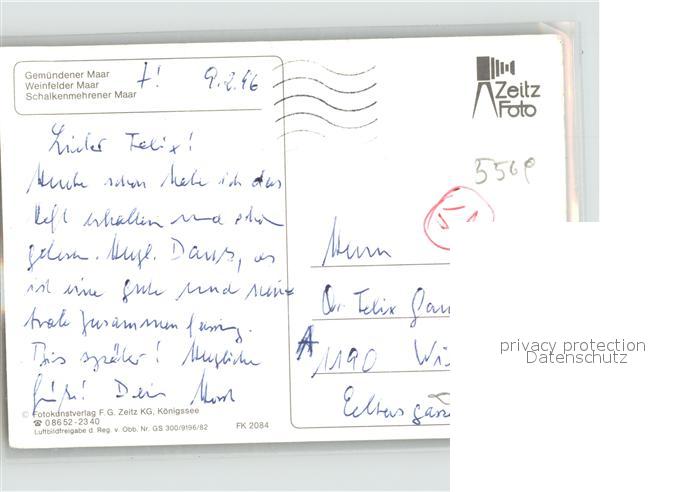 Gemündener Maar
Weinfelder Maar
Schalkenmehrener Maar
9.2.96
Zeitz
Foto
5509
Lieber Felix!
Heute schon habe ich das
Heft erhalten und schon
gelesen. Herzl. Dank, es
ist eine gute und
Zusammenfassung.
Bis später! Herzliche
Grüße! Dein Horst
Herrn
Dr. Felix
A 1190 Wi
© Fotokunstverlag F. G. Zeitz KG, Königssee
☎ 0 86 52 - 23 40
Luftbildfreigabe d. Reg. v. Obb. Nr. GS 300/9196/82
FK 2084
privacy protection
Datenschutz